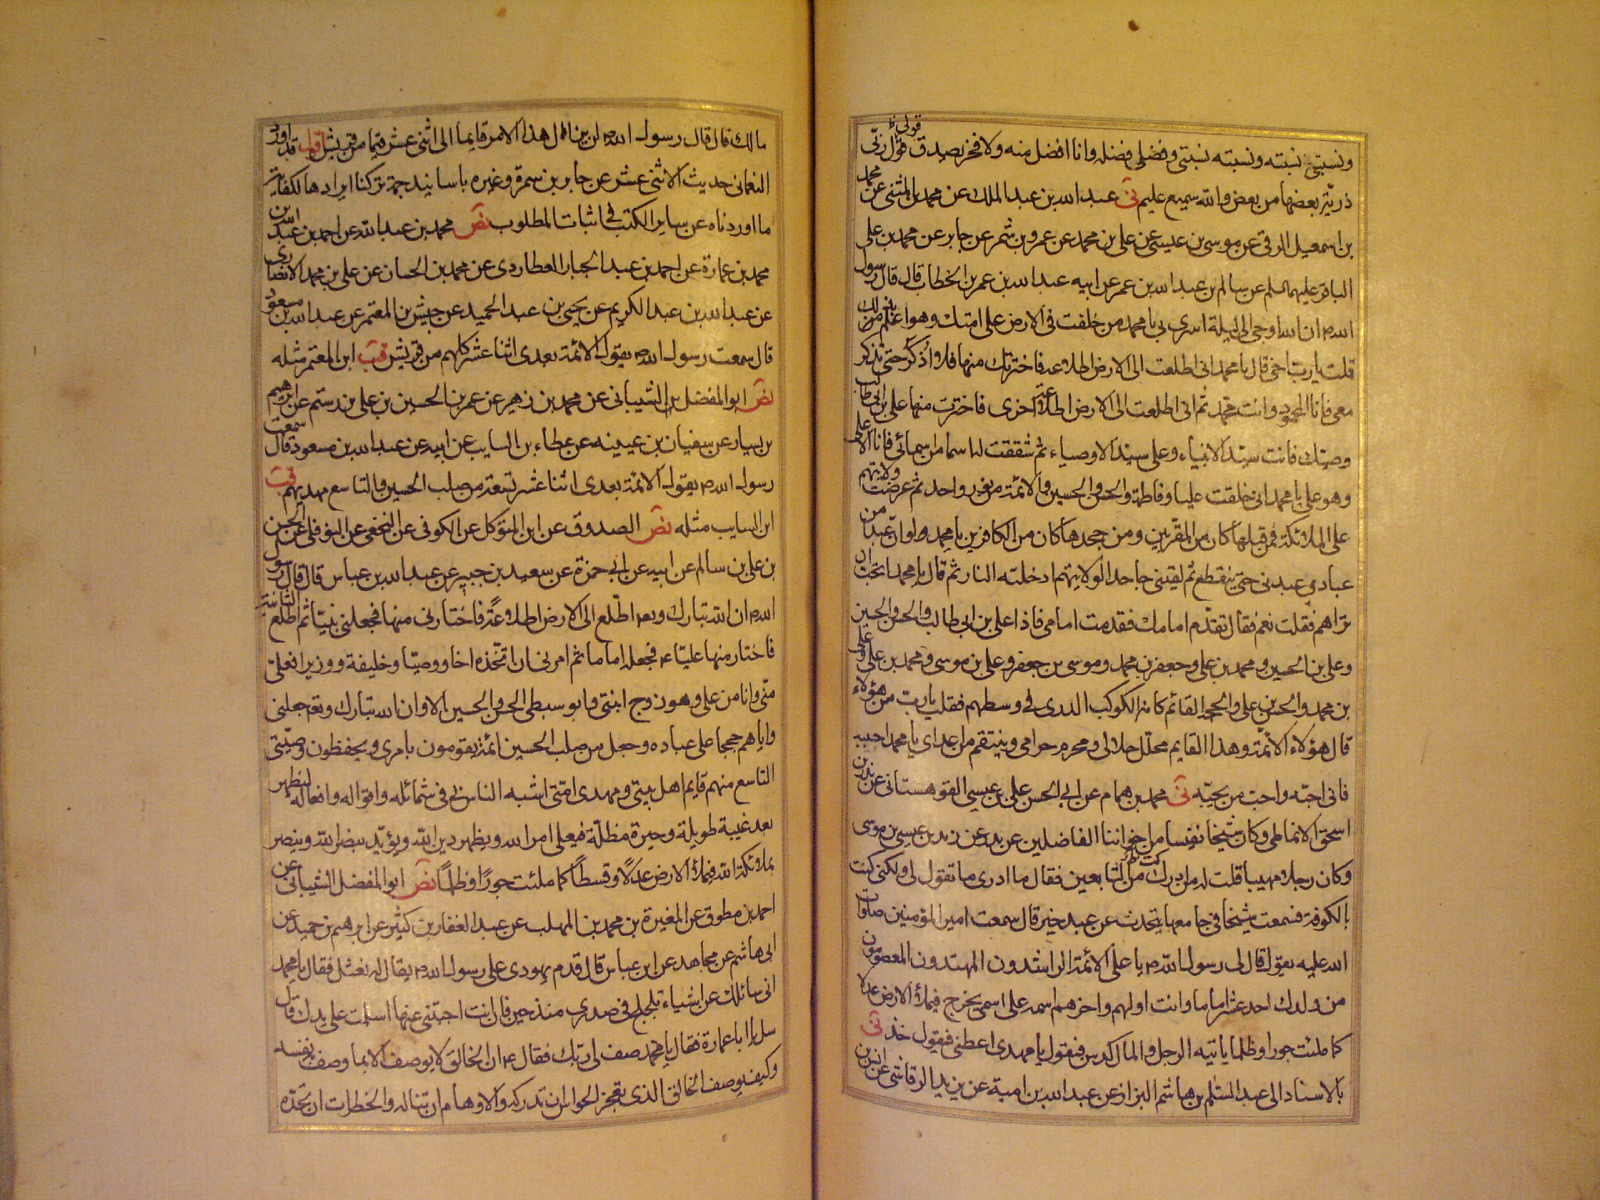 ونسبتي نسبته ونسبته نسبتي وفضلي فضله وانا افضل منه ولا فخر يصدق قولي قول ربي
ذرية بعضها من بعض والله سميع عليم نى عبد الله بن عبد الملك عن محمد بن المثنى عن محمد
بن اسمعيل الرقى عن موسى بن عيسى عن على بن محمد عن عمرو بن شمر عن جابر عن محمد بن على
الباقر عليهما السلم عن سالم بن عبد الله بن عمر عن ابيه عبد الله بن عمر بن الخطاب قال قال رسول
الله ص ان الله اوحى الى ليلة اسرى بى يا محمد من خلفت فى الارض على امتك وهو اعلم بذلك
قلت يا رب اخى قال يا محمد انى اطلعت الى الارض اطلاعه فاخترتك منها فلا اذكر حتى تذكر
معى فانا المحمود وانت محمد ثم انى اطلعت الى الارض اطلاعة اخرى فاخترت منها على بن ابى طالب
وصيك فانت سيد الانبياء وعلى سيد الاوصياء ثم شققت له اسما من اسمائى فانا الاعلى
وهو على يا محمد انى خلقت عليا وفاطمة والحسن والحسين والائمة من نور واحد ثم عرضت ولايتهم
على الملائكة فمن قبلها كان من المقربين ومن جحدها كان من الكافرين يا محمد ولو ان عبدا من
عبادى عبدنى حتى ينقطع ثم لقينى جاحدا لولايتهم ادخلته النار ثم قال يا محمد اتحب ان
تراهم فقلت نعم فقال تقدم امامك فتقدمت امامى فاذا على بن ابى طالب والحسن والحسين
وعلى بن الحسين ومحمد بن على وجعفر بن محمد وموسى بن جعفر وعلى بن موسى ومحمد بن على وعلى
بن محمد والحسن بن على والحجة القائم كانه الكوكب الدرى فى وسطهم فقلت يا رب من هؤلاء
قال هؤلاء الائمة وهذا القايم محلل حلالى ومحرم حرامى وينتقم من اعداى يا محمد احببه
فانى احبه واحب من يحبه نى محمد بن همام عن ابى الحسن على بن عيسى القوهستانى عن بدر بن
اسحق الانماطى وكان شيخا نفيسا من اخواننا الفاضلين عن بدر عن زيد بن عيسى بن موسى
وكان رجلا مهيبا قلت له من ادركت من التابعين فقال ما ادرى ما تقول لى ولكنى كنت
بالكوفة فسمعت شيخا فى جامعها يتحدث عن عبد خير قال سمعت امير المؤمنين صلوات
الله عليه يقول قال لى رسول الله ص يا على الائمة الراشدون المهتدون المعصومون
من ولدك احد عشر اماما وانت اولهم واخرهم اسمه على اسمى يخرج فيملأ الارض عدلا
كما ملئت جورا وظلما ياتيه الرجل والمال كدس فيقول يا مهدى اعطنى فيقول خذ نى
بالاسناد الى عبد السلم بن هاشم البزاز عن عبد الله بن امية عن يزيد الرقاشى عن انس بن
مالك قال قال رسول الله ص لن يزال هذا الامر قايما الى اثنى عشر قيما من قريش قب قد اورد
النعمانى حديث الاثنى عشر عن جابر بن سمرة وغيره باسانيد جمة تركنا ايرادها لكفاية
ما اوردناه عن ساير الكتب فى اثبات المطلوب نص محمد بن عبد الله عن احمد بن عبد الله بن
محمد بن عمارة عن احمد بن عبد الجبار العطاردى عن محمد بن الحسان عن على بن محمد الانصارى
عن عبد الله بن عبد الكريم عن يحيى بن عبد الحميد عن حبيش بن المعتمر عن عبد الله بن مسعود
قال سمعت رسول الله ص يقول الائمة بعدى اثنا عشر كلهم من قريش قب ابن المعتمر مثله
نص ابو المفضل الشيبانى عن محمد بن زهير عن عمر بن الحسين بن على بن رستم عن ابرهيم
بن يسار عن سفيان بن عيينه عن عطاء بن السايب عن ابيه عن عبد الله بن مسعود قال سمعت
رسول الله ص يقول الائمة بعدى اثنا عشر تسعة من صلب الحسين والتاسع مهديهم قب
ابن السايب مثله نص الصدوق عن ابن المتوكل عن الكوفى عن النخعى عن النوفلى عن الحسن
بن على بن سالم عن ابيه عن ابى حمزة عن سعيد بن جبير عن عبد الله بن عباس قال قال رسول
الله ص ان الله تبارك وتعالى اطلع الى الارض اطلاعة فاختارنى منها فجعلنى نبيا ثم اطلع الثانية
فاختار منها عليا ع فجعله اماما ثم امرنى ان اتخذه اخا ووصيا وخليفة ووزيرا فعلى
منى وانا من على وهو زوج ابنتى وابو سبطى الحسن والحسين الا وان الله تبارك وتعالى جعلنى
واياهم حججا على عباده وجعل من صلب الحسين ائمة يقومون بامرى ويحفظون وصيتى
التاسع منهم قايم اهل بيتى ومهدى امتى اشبه الناس بى فى شمائله واقواله وافعاله ليظهر
بعد غيبة طويلة وحيرة مظلة فيعلى امر الله ويظهر دين الله ويؤيد بنصر الله وينصر
بملائكة الله فيملأ الارض عدلا وقسطا كما ملئت جورا وظلما نص ابو المفضل الشيبانى عن
احمد بن مطوق عن المغيرة بن محمد بن المهلب عن عبد الغفار بن كثير عن ابرهيم بن حميد عن
ابى هاشم عن مجاهد عن ابن عباس قال قدم يهودى على رسول الله ص يقال له نعثل فقال يا محمد
انى سائلك عن اشياء تلجلج فى صدرى منذ حين فان انت اجبتنى عنها اسلمت على يدك قال
سل يا ابا عمارة فقال يا محمد صف لى ربك فقال ع ان الخالق لا يوصف الا بما وصف به نفسه
وكيف يوصف الخالق الذى تعجز الحواس ان تدركه والاوهام ان تناله والخطرات ان تحده